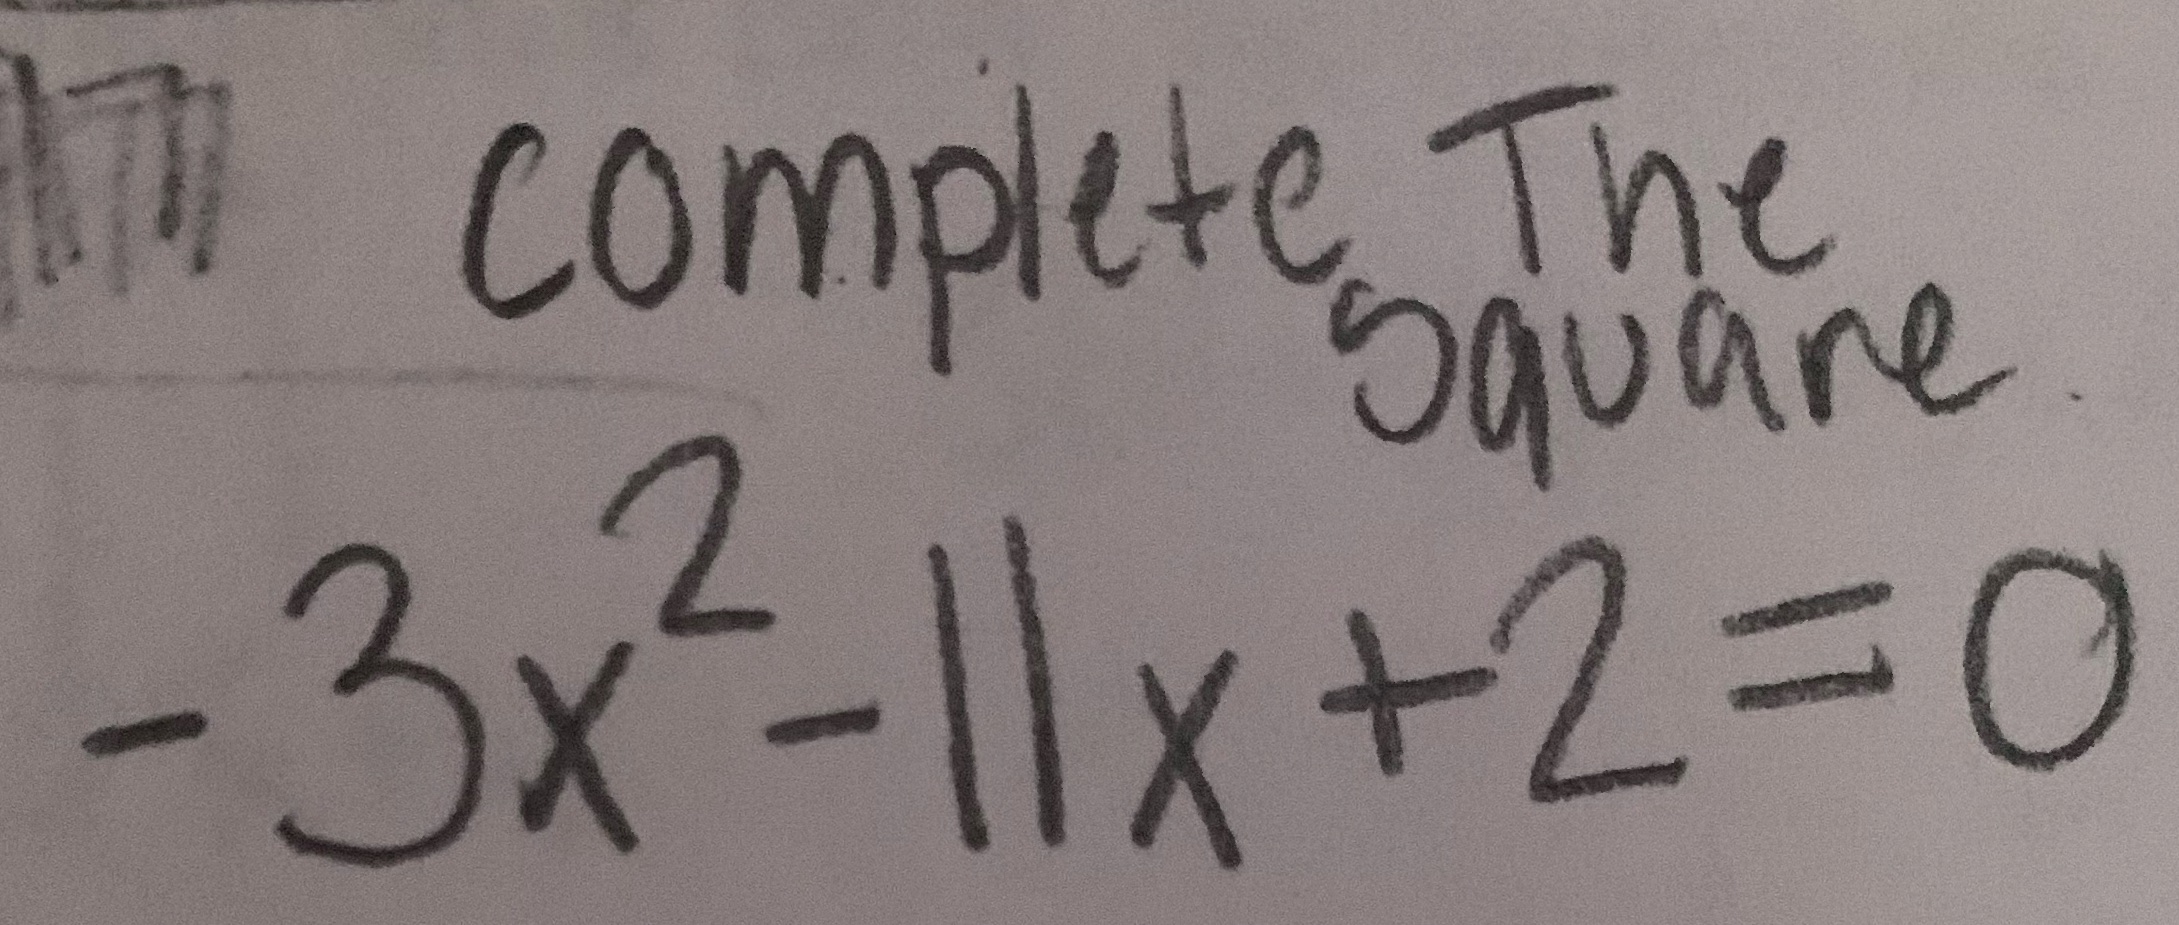 complete The
square.
-3x²-11x+2=0